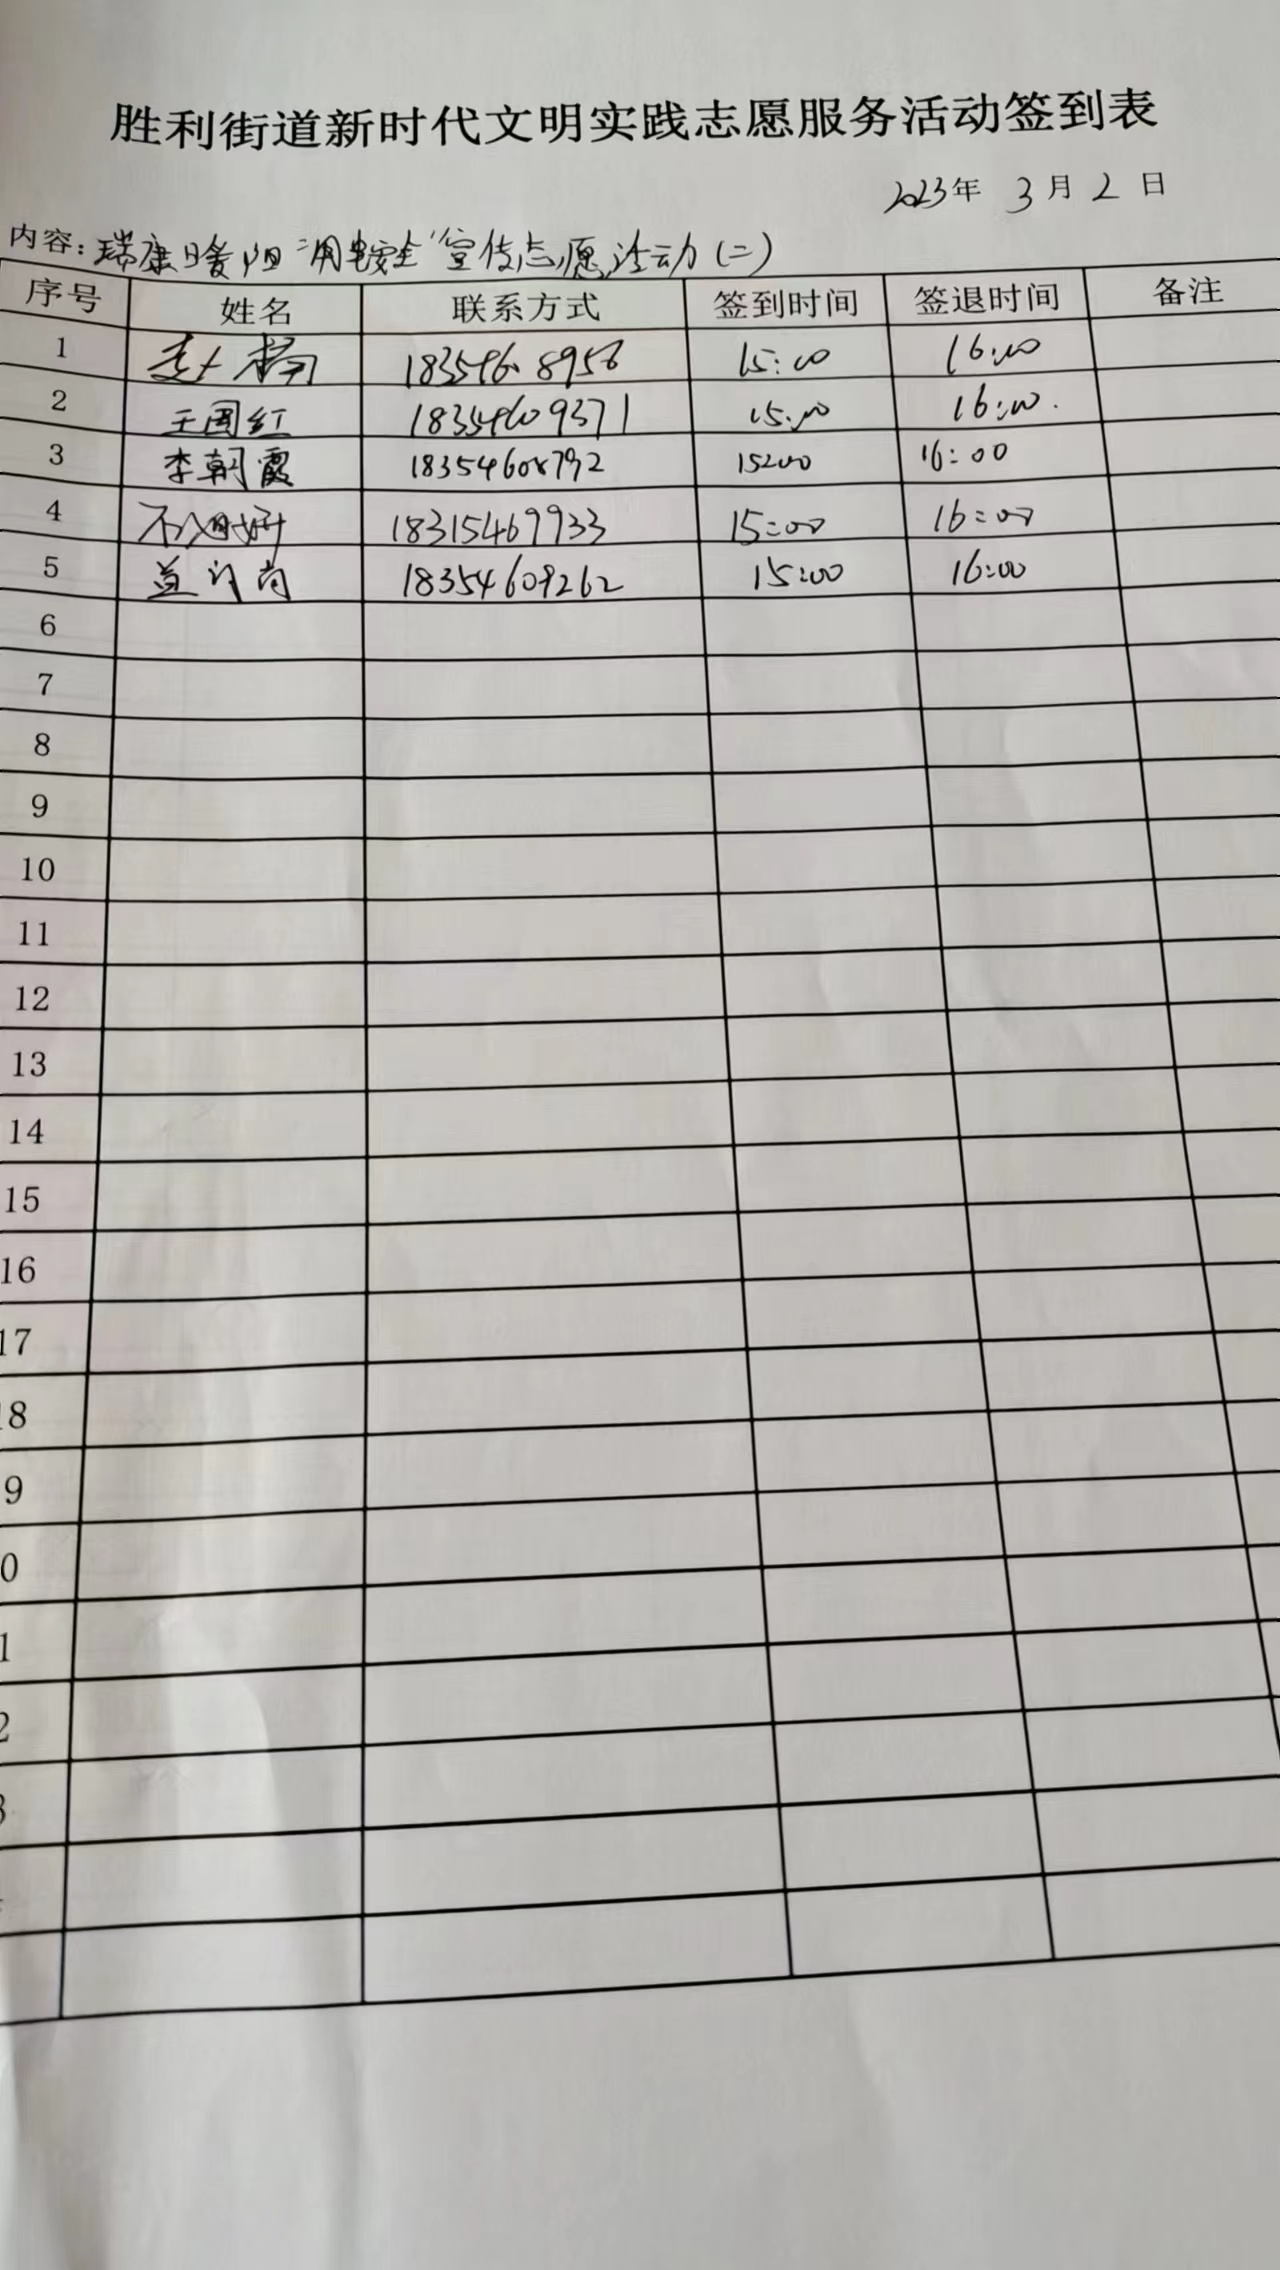 胜利街道新时代文明实践志愿服务活动签到表
2023年 3月 2 日
内容：瑞康暖阳“用电安全”宣传志愿活动（二）
序号 姓名 联系方式 签到时间 签退时间 备注
1 赵楠 15:00 16:00
2 王国红 18354609371 15:00 16:00.
3 李朝霞 18354608792 15:00 16:00
4 18315469933 15:00 16:00
5 18354609262 15:00 16:00
6
7
8
9
10
11
12
13
14
15
16
17
18
9
0
1
2
3